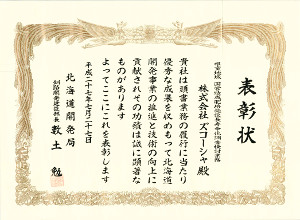 表彰状
株式会社 ズコーシャ殿
貴社は頭書業務の履行に当たり
優秀な成果を収めもって北海道
開発事業の推進と技術の向上に
貢献されその功績は誠に顕著な
ものがあります
よってここにこれを表彰します
平成二十七年七月二十七日
北海道開発局
釧路開発建設部長 数土 勉